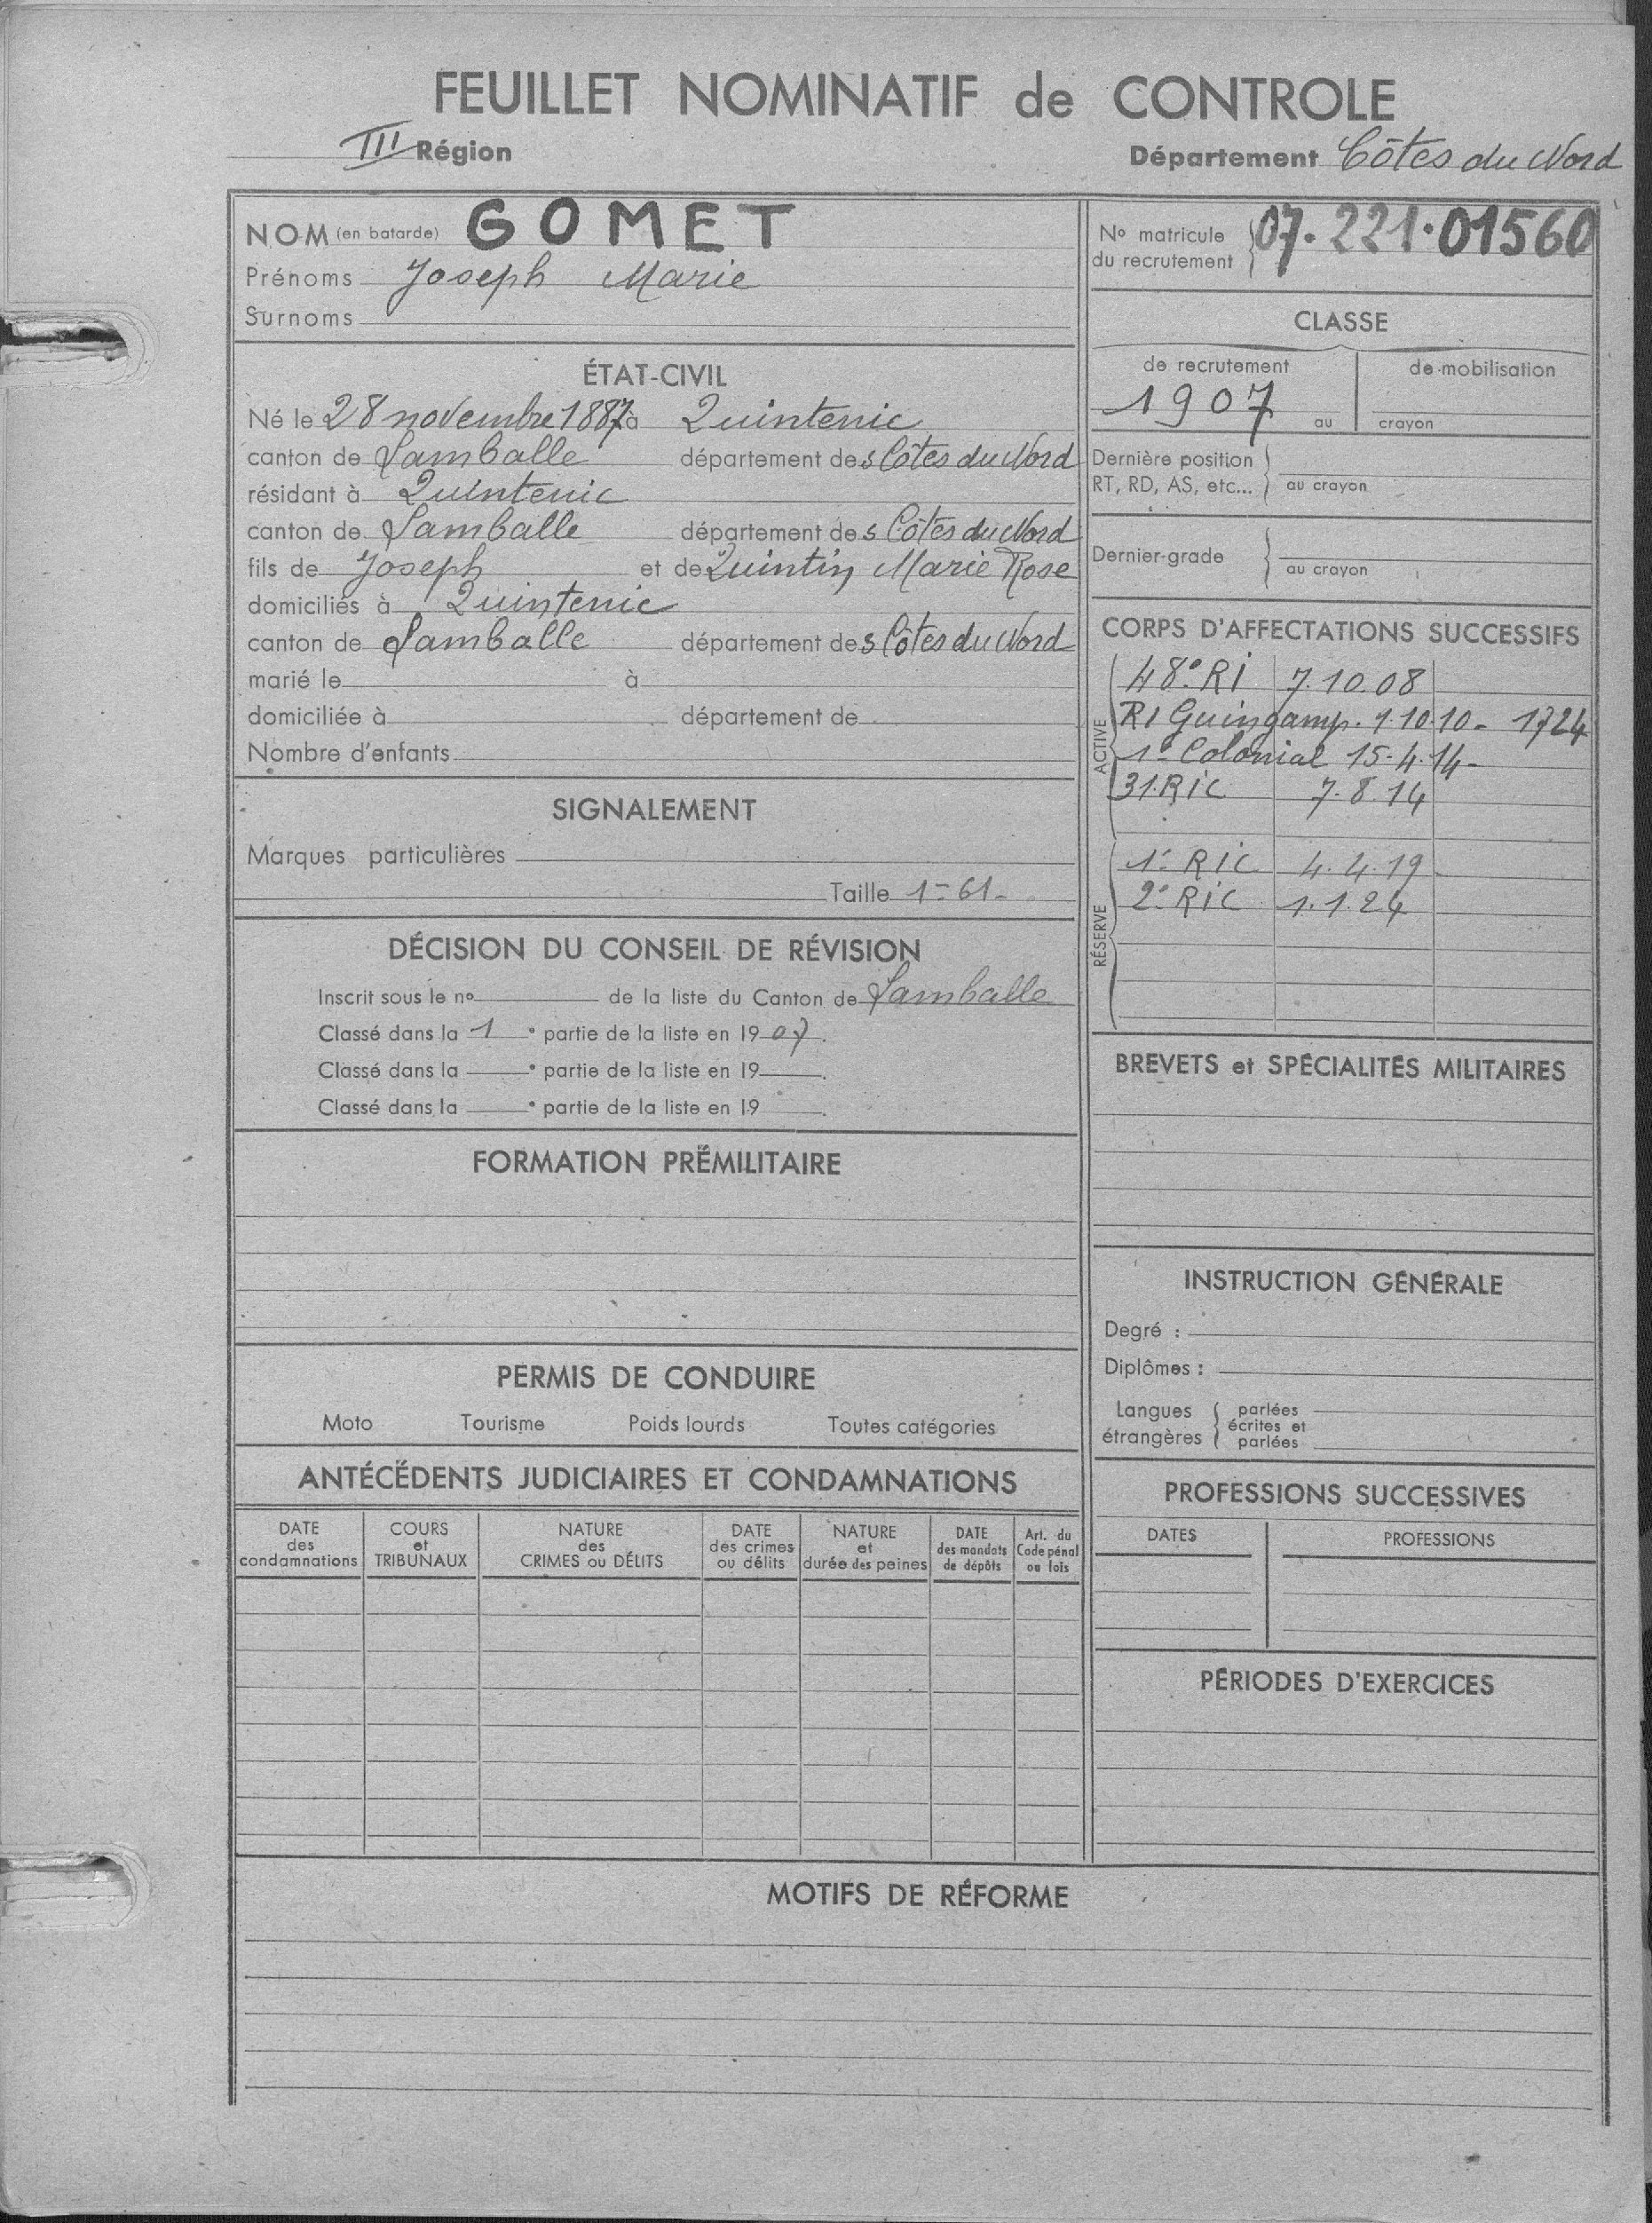 FEUILLET NOMINATIF de CONTROLE
III Région
Département Côtes du Nord
NOM (en batarde) GOMET
Prénoms Joseph Marie
Surnoms
ÉTAT-CIVIL
Né le 28 novembre 1887 à Quintenic
canton de Lamballe département des Côtes du Nord
résidant à Quintenic
canton de Lamballe département des Côtes du Nord
fils de Joseph et de Quintin Marie Rose
domiciliés à Quintenic
canton de Lamballe département des Côtes du Nord
marié le à
domiciliée à département de
Nombre d'enfants
SIGNALEMENT
Marques particulières
Taille 1-61-
DÉCISION DU CONSEIL DE RÉVISION
Inscrit sous le no de la liste du Canton de Lamballe
Classé dans la 1 e partie de la liste en 1907.
Classé dans la e partie de la liste en 19 .
Classé dans la e partie de la liste en 19 .
FORMATION PRÉMILITAIRE
PERMIS DE CONDUIRE
Moto Tourisme Poids lourds Toutes catégories
ANTÉCÉDENTS JUDICIAIRES ET CONDAMNATIONS
DATE des condamnations
COURS et TRIBUNAUX
NATURE des CRIMES ou DÉLITS
DATE des crimes ou délits
NATURE et durée des peines
DATE des mandats de dépôts
Art. du Code pénal ou lois
No matricule du recrutement 07.221.01560
CLASSE
de recrutement
de mobilisation
1907
au crayon
Dernière position
RT, RD, AS, etc... au crayon
Dernier grade
au crayon
CORPS D'AFFECTATIONS SUCCESSIFS
ACTIVE
48e RI 7.10.08
RI Guingamp. 1.10.10- 1724
1e Colonial 15-4-14-
31.RIC 7.8.14
RÉSERVE
1e RIC 4.4.19
2e RIC 1.1.24
BREVETS et SPÉCIALITÉS MILITAIRES
INSTRUCTION GÉNÉRALE
Degré :
Diplômes :
Langues étrangères
parlées
écrites et
parlées
PROFESSIONS SUCCESSIVES
DATES PROFESSIONS
PÉRIODES D'EXERCICES
MOTIFS DE RÉFORME